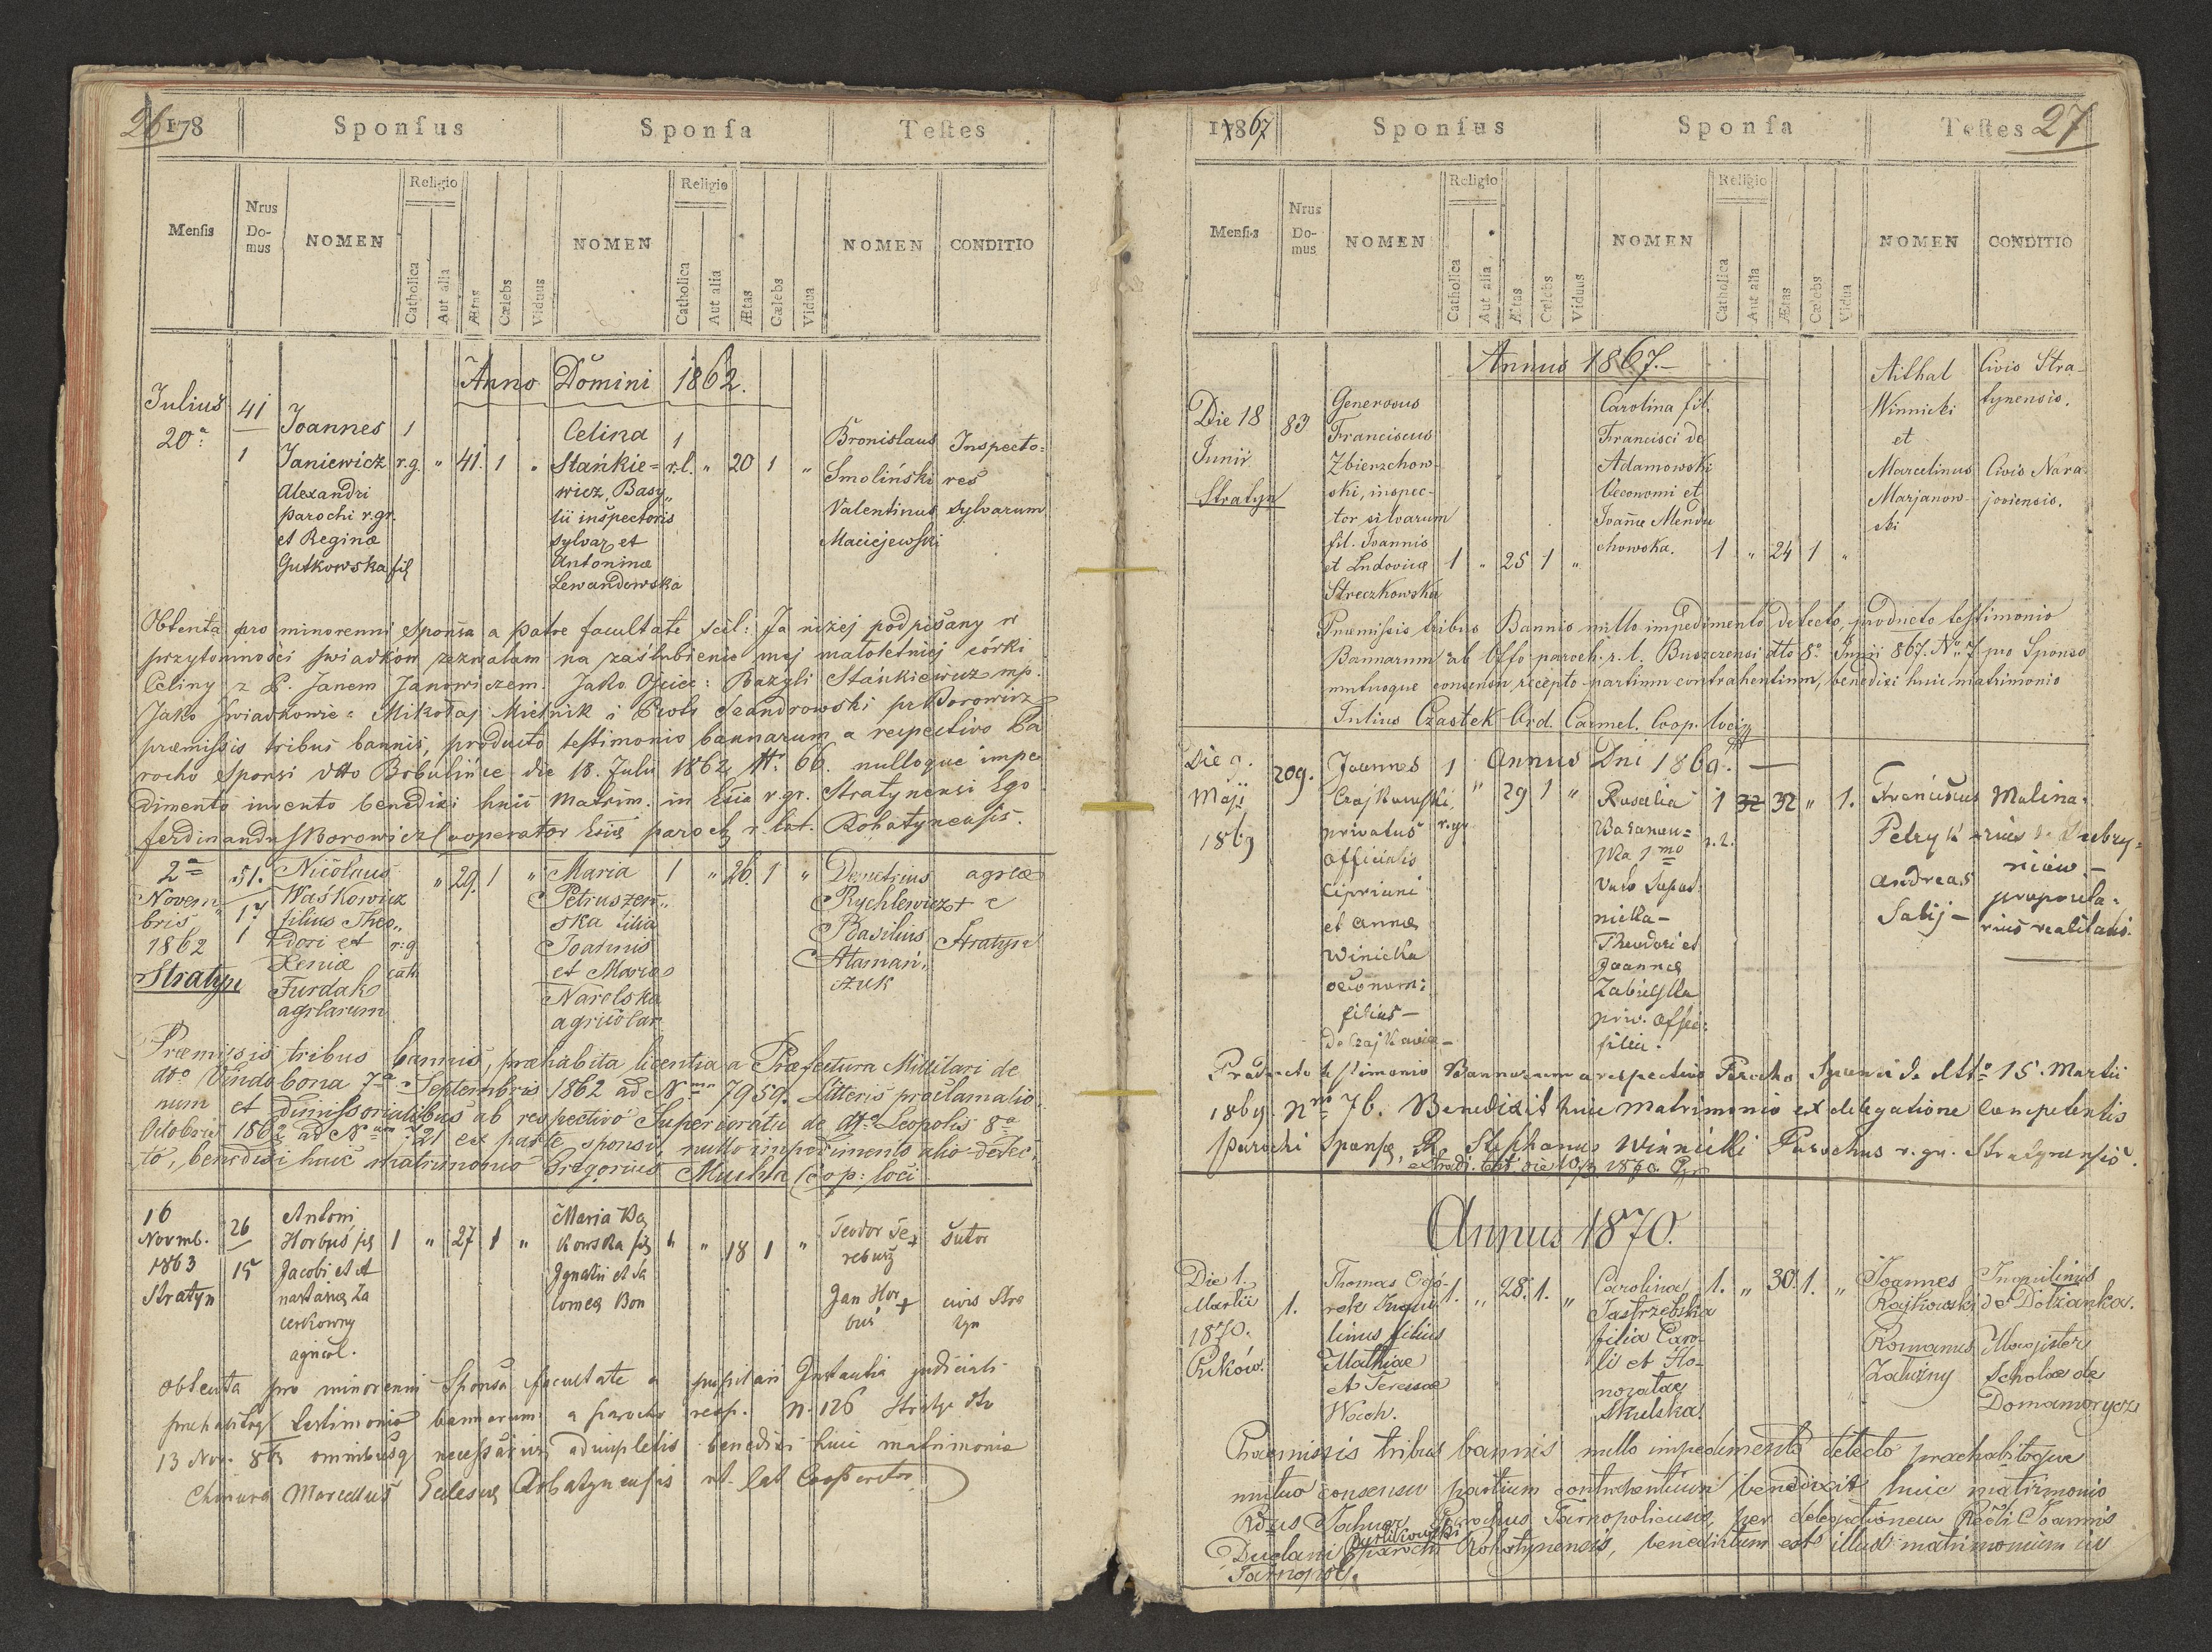 26 178 Sponsus Sponsa Testes
Mensis Nrus Domus NOMEN Religio Catholica Aut alia Ætas Cælebs Viduus NOMEN Religio Catholica Aut alia Ætas Cælebs Vidua NOMEN CONDITIO
Anno Domini 1862.
Julius
20a
41
1
Joannes 1
Janiewicz r.g. " 41. 1 "
Alexandri
parochi r.gr.
et Reginæ
Gutkowska fil
Celina 1
Stańkie= r.l. " 20 1 "
wicz, Basy,,
lii inspectoris
sylvar et
Antoninæ
Lewandowska
Bronislaus
Smoliński
Valentinus
Maciejewski
Inspecto=
res
sylvarum
Obtenta pro minorenni Sponsa a patre facultate scil: Ja niżej podpisany w
przytomności świadków zezwalam na zaślubienie mej małoletniej córki
Celiny z P. Janem Janowiczem. Jako Ojciec: Bazyli Stańkiewicz mp.
Jako świadkowie: Mikołaj Mielnik i Piotr
præmissis tribus bannis, producto testimonio bannarum a respectivo Pa
rocho Sponsi dtto Bobulińce die 18. Julii 1862 N. 66. nulloque impe
dimento invento benedixi huic Matrim. in Ecsia r.gr. Stratynensi Ego
ferdinandus Borowicz Cooperator Ecsiæ paroch r. lat. Rohatynensis.
2a
Novem
bris
1862
Stratyn
51.
17
1
Nicolaus " 29. 1 "
Waśkowicz
filius Theo,,
dori et r:g
Xeniæ cath
Furdak
agrlarum
Maria 1 " 26. 1 "
Petruszeń,,
ska filia
Joannis
et Mariæ
Narolska
agricolar
Demetrius
Rychlewicz +
Basilius
Ataman,,
czuk
agrlæ
e
Stratyn
Præmissis tribus bannis, præhabita licentia a Præfectura Militari de
dto Vindobona 7a Septembris 1862 ad Nrum 7959. Litteris proclamatio
num et dimissorialibus ab respectivo Superioratu de dto Leopolis 8a
Octobris 1862 ad Nrum 21 ex parte sponsi, nullo impedimento alio detec,,
to, benedixi huic matrimonio Gregorius Muchła Coop: loci
16
Novemb.
1863
Stratyn
26
15
Antoni
Horbus fil 1 " 27 1 "
Jacobi et A
nastasiæ Za
cerkowny
agricol.
Maria Ba
kowska fil " " 18 1 "
Ignatii et Sa
lomeæ Bon
Teodor Te +
reburz
Jan Hor +
bus
Sutor
civis Stra
tyn
obtenta pro minorenni Sponsa facultate a pupilari Instantia judiciali
præhabitoq testimonio bannorum a parocho resp. N. 126 Stratyn dto
13 Nov. 863 omnibusq necessariis adimpletis benedixi huic matrimonio
Chmura Marcellus Eclesiæ Rohatynensis rt. lat Cooperator
1867 Sponsus Sponsa Testes 27
Mensis Nrus Domus NOMEN Religio Catholica Aut alia Ætas Cælebs Viduus NOMEN Religio Catholica Aut alia Ætas Cælebs Vidua NOMEN CONDITIO
Annus 1867.-
Die 18
Junii
Stratyn
83
Generosus
Franciscus
Zbierzchow-
ski, inspec-
tor silvarum
fil. Joannis
et Ludovicæ 1 " 25 1 "
Streczkowska
Carolina fil.
Francisci de
Adamowski
Oeconomi et
Joannæ Mendu
chowska. 1 " 24 1 "
Michal
Winnicki
et
Marcelinus
Marjanow-
ski
Civis Stra-
tynensis.
Civis Nara-
joviensis.
Præmissis tribus Bannis nullo impedimento detecto, producto testimonio
Bannarum ab Offo paroch. r. l. Buszczensi dtto 8o Junii 867. No 7 pro Sponso
mutuoque consensu recepto partium contrahentium, benedixi huic matrimonio
Julius Czastek Ord. Carmel. Coop. loci
Annus Dni 1869. -
Die 9.
Maji
1869
209.
Joannes 1 " 29 1 "
Czajkowski,
privatus r.gr
officialis
Cipriani
et Annæ
Winicka
oeconomi
filius -
de Czajkowice -
Rosalia 1 32 32 " 1.
Baranow=
ska 1mo r.l.
voto Sapad-
nicka -
Theodori et
Joannæ
Zabielska
priv. offici:
filia.
Franciscus
Petryk
Andreas
Salij -
Molina-
rius de Dubry-
niow. -
propieta-
rius realitatis.
Producto testimonio Bannorum a respectivo Parocho Sponsi de dtto 15. Martii
1869. Nro 76. Benedixit huic Matrimonio ex delegatione Competentis
parochi Sponsæ, R. Stephanus Winnicki Parochus r.gr. Stratynensis.
Annus 1870.
Die 1.
Martii
1870.
Puków.
1.
Thomas Ogó- 1. " 28. 1. "
rek Inqui-
linus filius
Mathiae
et Teressae
Woch.
Carolina 1. " 30. 1. "
Jastrzebska
filia Caro-
li et Ho-
noratae
Skulska.
Joannes
Rajkowski
Romanus
Załuzny
Inquilinus
de Dołżanka.
Magister
Scholæ de
Domamorycz
Praemissis tribus bannis nullo impedimento detecto praehabitoque
mutuo consensu partium contrahentium benedixit huic matrimonio
Rdus Jachner Parochus Tarnopoliensis, per delegationem Rssi Joannis
Duolani Kutkowski parochi Rohatynensis, benedictum est illud matrimonium in
Tarnopol.